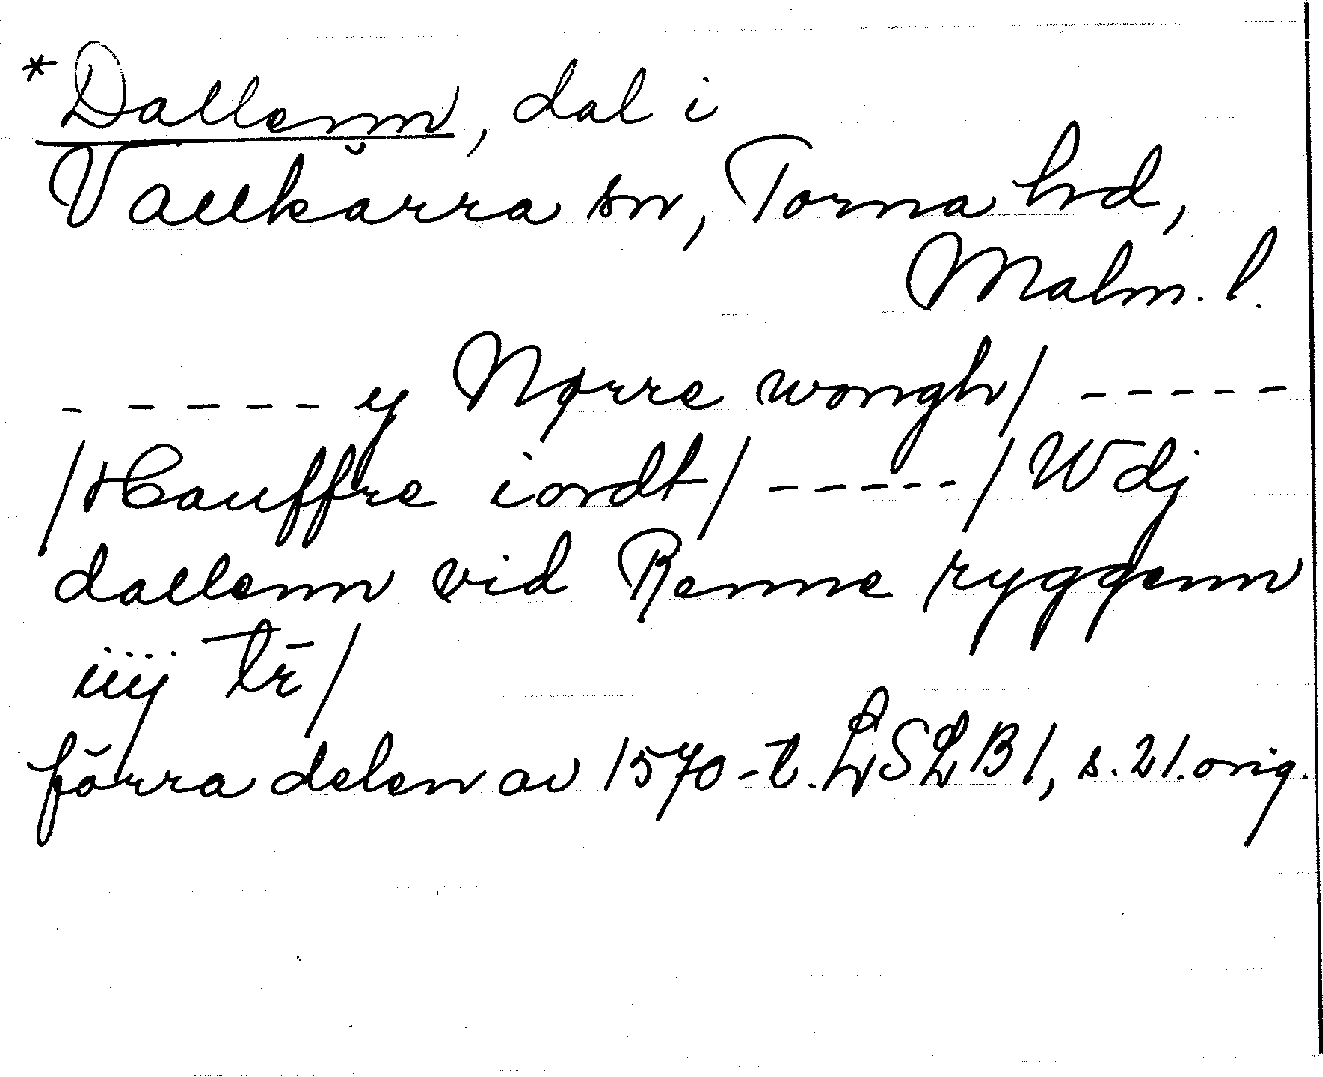 *Dallenn, dal i
Vallkärra sn, Torna hd,
Malm. l.
- - - - - y Nørre wongh/ - - - - -
/Hauffre iordt/ - - - - - / Wdj
dallenn vid Renne ryggenn
iiij tr̄/
förra delen av 1570-t. LSLB 1, s. 21. orig.